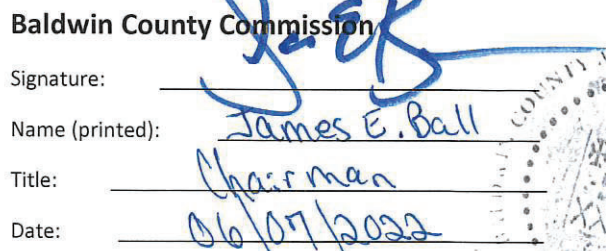 Baldwin County Commission
Signature:
Name (printed): James E. Ball
Title: Chairman
Date: 06/07/2022
COUNTY